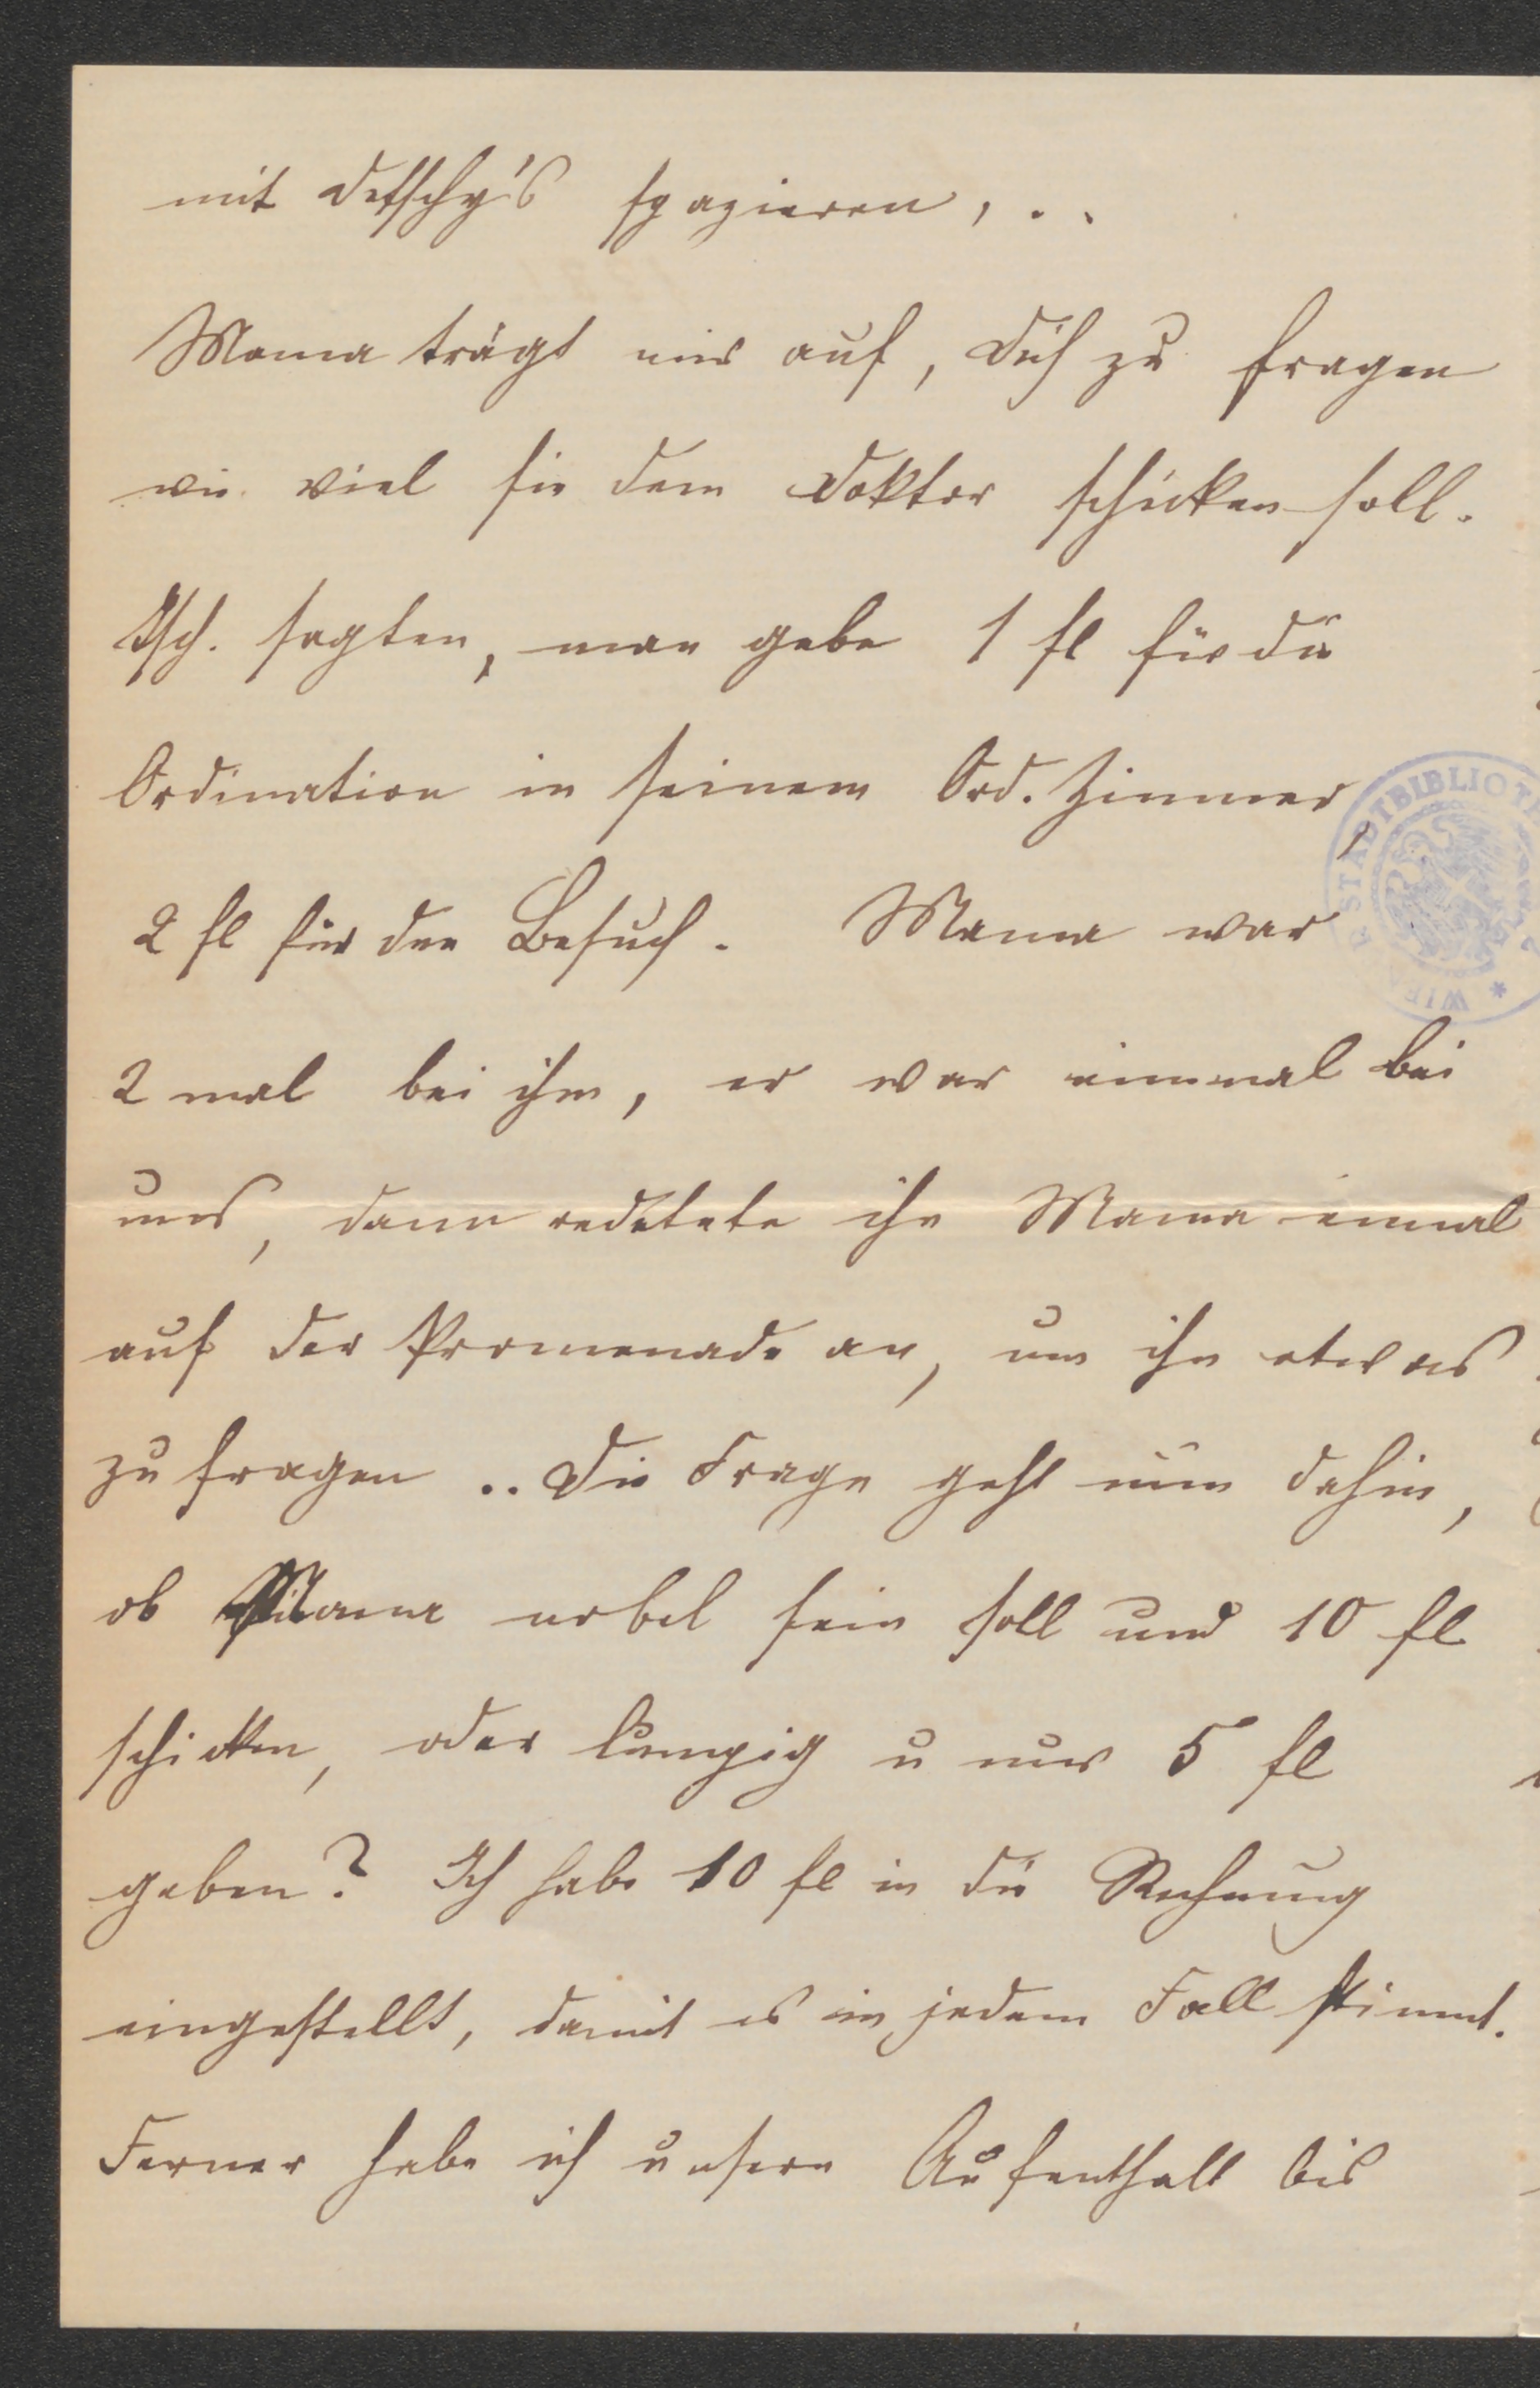 mit Detschy's spazieren, . .
Mama trägt mir auf, Dich zu fragen
wie viel sie dem Doktor schicken soll.
sagten, man gebe 1 fl für die
Ordination in seinem Ord. Zimmer,
2 fl für den Besuch. Mama war
2 mal bei ihm, er war einmal bei
uns, dann redetete ihn Mama einmal
auf der Promenade an, um ihn etwas
zu fragen .. Die Frage geht nun dahin,
ob Mama nobel sein soll und 10 fl
schicken, oder lumpig u nur 5 fl
geben? Ich habe 10 fl in die Rechnung
eingestellt, damit es in jedem Fall stimmt.
Ferner habe ich unsern Aufenthalt bis
STADTBIBLIOT
WIE